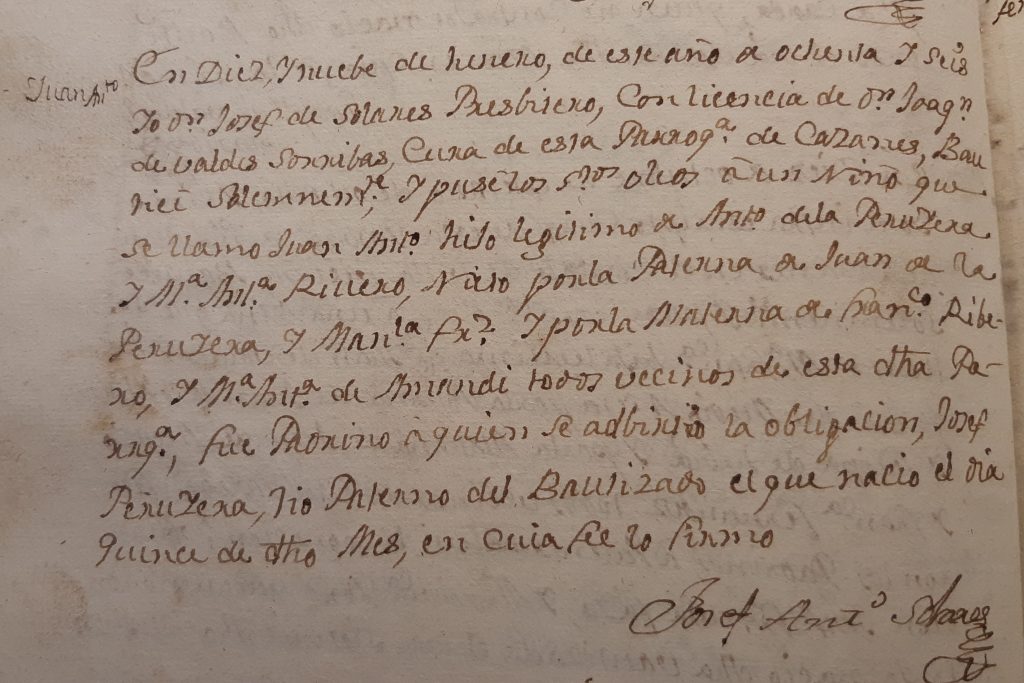 Juan Antto
En Diez, Y nuebe de henero, de este año de ochenta Y Seis
Yo Dn Josef de Solares Presbitero, Con licencia de Dn Joaqn
de valdes Sorribas, Cura de esta Parroqa de Cazanes, Bau
ticé Solemnente, Y puse los Stos oleos â un Niño que
se llamo Juan Anto hijo legitimo de Anto dela Peruyera
Y Ma Anta Riviero, Nieto por la Paterna de Juan de la
Peruyera, Y Manla Frz Y por la Materna de Franco Ribe-
ro, Y Ma Anta de Amandi todos vecinos de esta dha Pa-
rrqa, fue Padrino â quien se adbirtio la obligacion, Josef
Peruyera, tio Paterno del Bautizado el que nacio el dia
quince de dho Mes, en cuia fee lo firmo
Josef Anto Solares